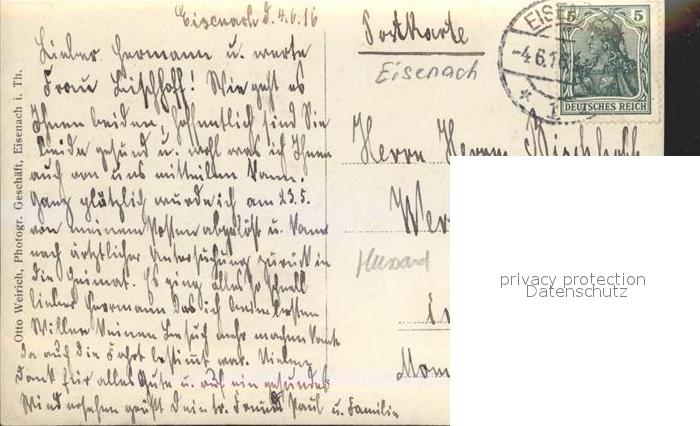 Eisenach d. 4.6.16
Lieber Hermann u. werte
Frau Bischhoff! Wie geht es
Ihnen beiden, hoffentlich sind Sie
beide gesund u. wohl was ich Ihnen
auch von uns mitteilen kann.
Ganz plötzlich wurde ich am 23.5.
von meinem Posten abgelöst u. kam
nach ärztlicher Untersuchung zurück in
die Heimat. Es ging alles so schnell
lieber Herrmann das ich beim besten
Willen keinen Besuch mehr machen konnte
da auch die Fahrt bestimmt war. Vielen
Dank für alles Gute u. auf ein gesundes
Wiedersehen grüßt Dein tr. Freund Paul u. Familie
Otto Weirich, Photogr. Geschäft, Eisenach i. Th.
Postkarte
Eisenach
EISE
-4.6.16
5 5
DEUTSCHES REICH
Herrn Herm. Bischhoff
Wer
i
Mom
privacy protection
Datenschutz